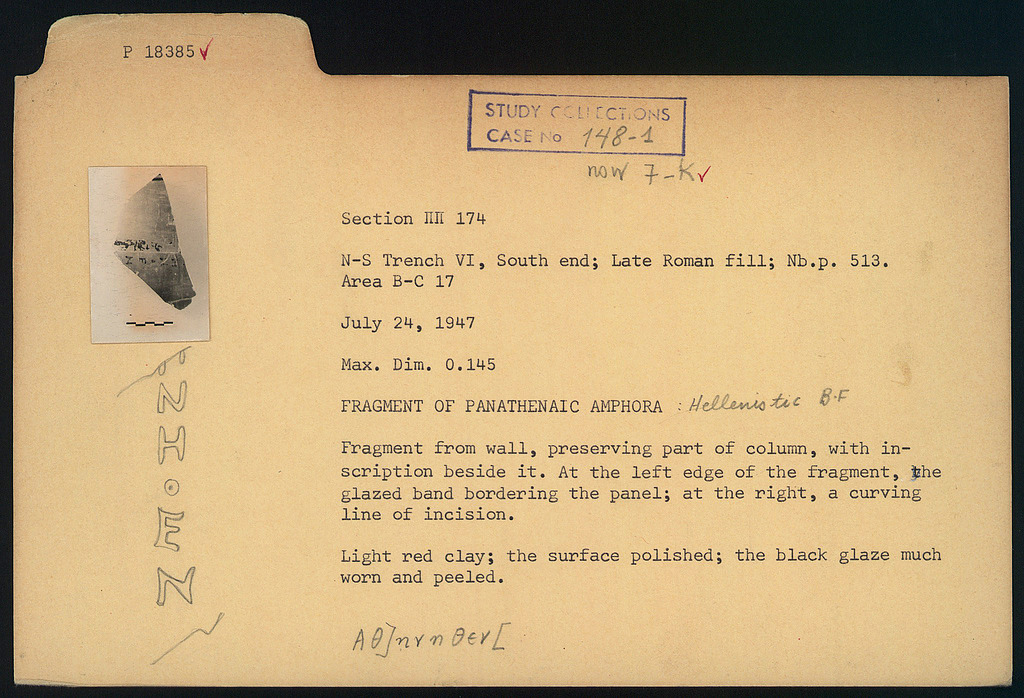 P 18385
STUDY COLLECTIONS
CASE No 148-1
now 7-K
Section ΠΠ 174
N-S Trench VI, South end; Late Roman fill; Nb.p. 513.
Area B-C 17
July 24, 1947
Max. Dim. 0.145
FRAGMENT OF PANATHENAIC AMPHORA : Hellenistic B.F
Fragment from wall, preserving part of column, with in-
scription beside it. At the left edge of the fragment, the
glazed band bordering the panel; at the right, a curving
line of incision.
Light red clay; the surface polished; the black glaze much
worn and peeled.
Αθ]ηνηθεν[
ΝΗΘΕΝ